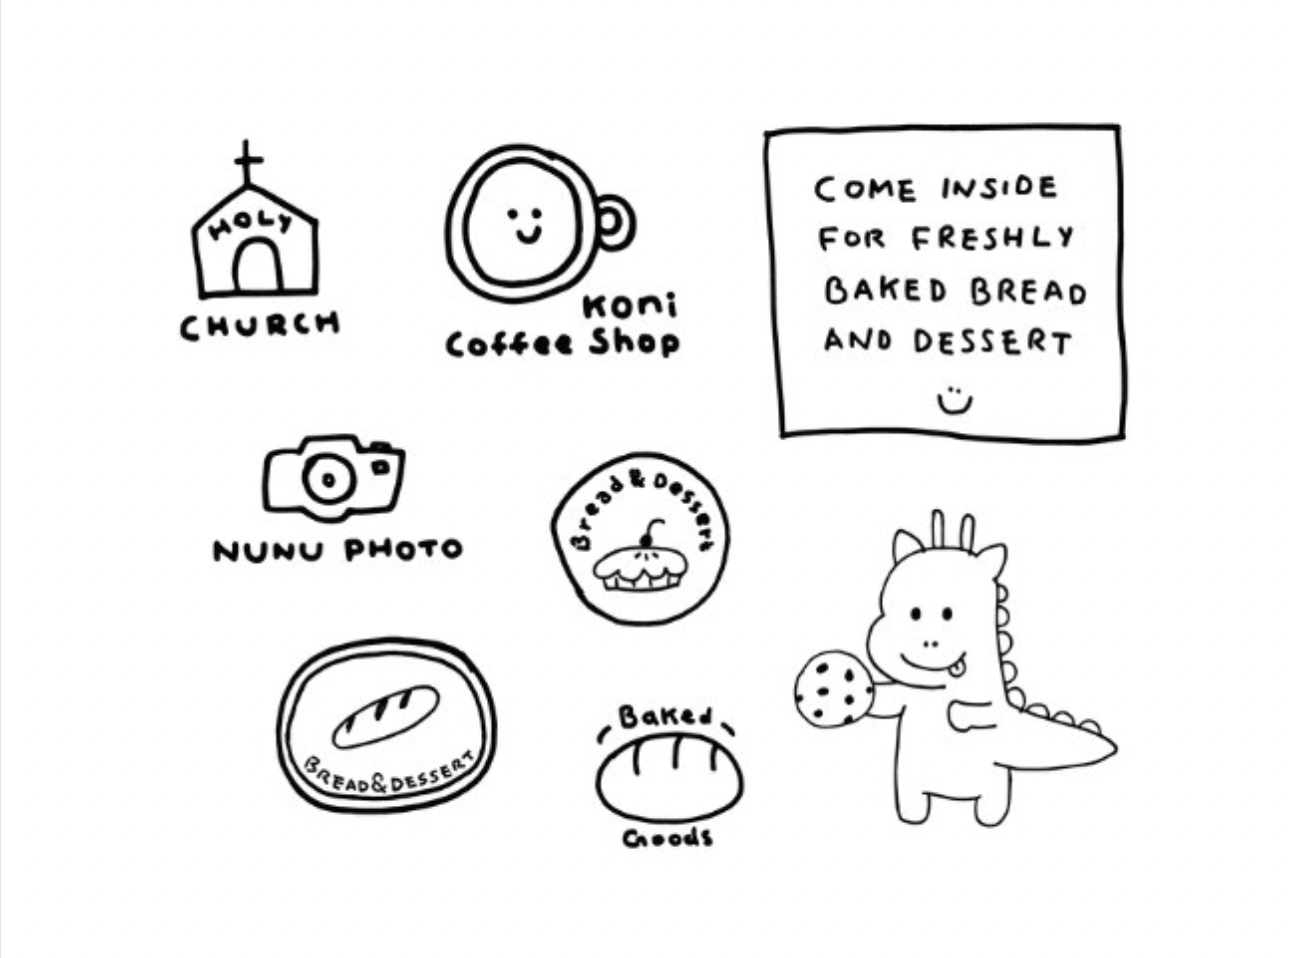 HOLY
CHURCH
Koni
Coffee Shop
COME INSIDE
FOR FRESHLY
BAKED BREAD
AND DESSERT
NUNU PHOTO
Bread & Dessert
BREAD & DESSERT
Baked
Goods